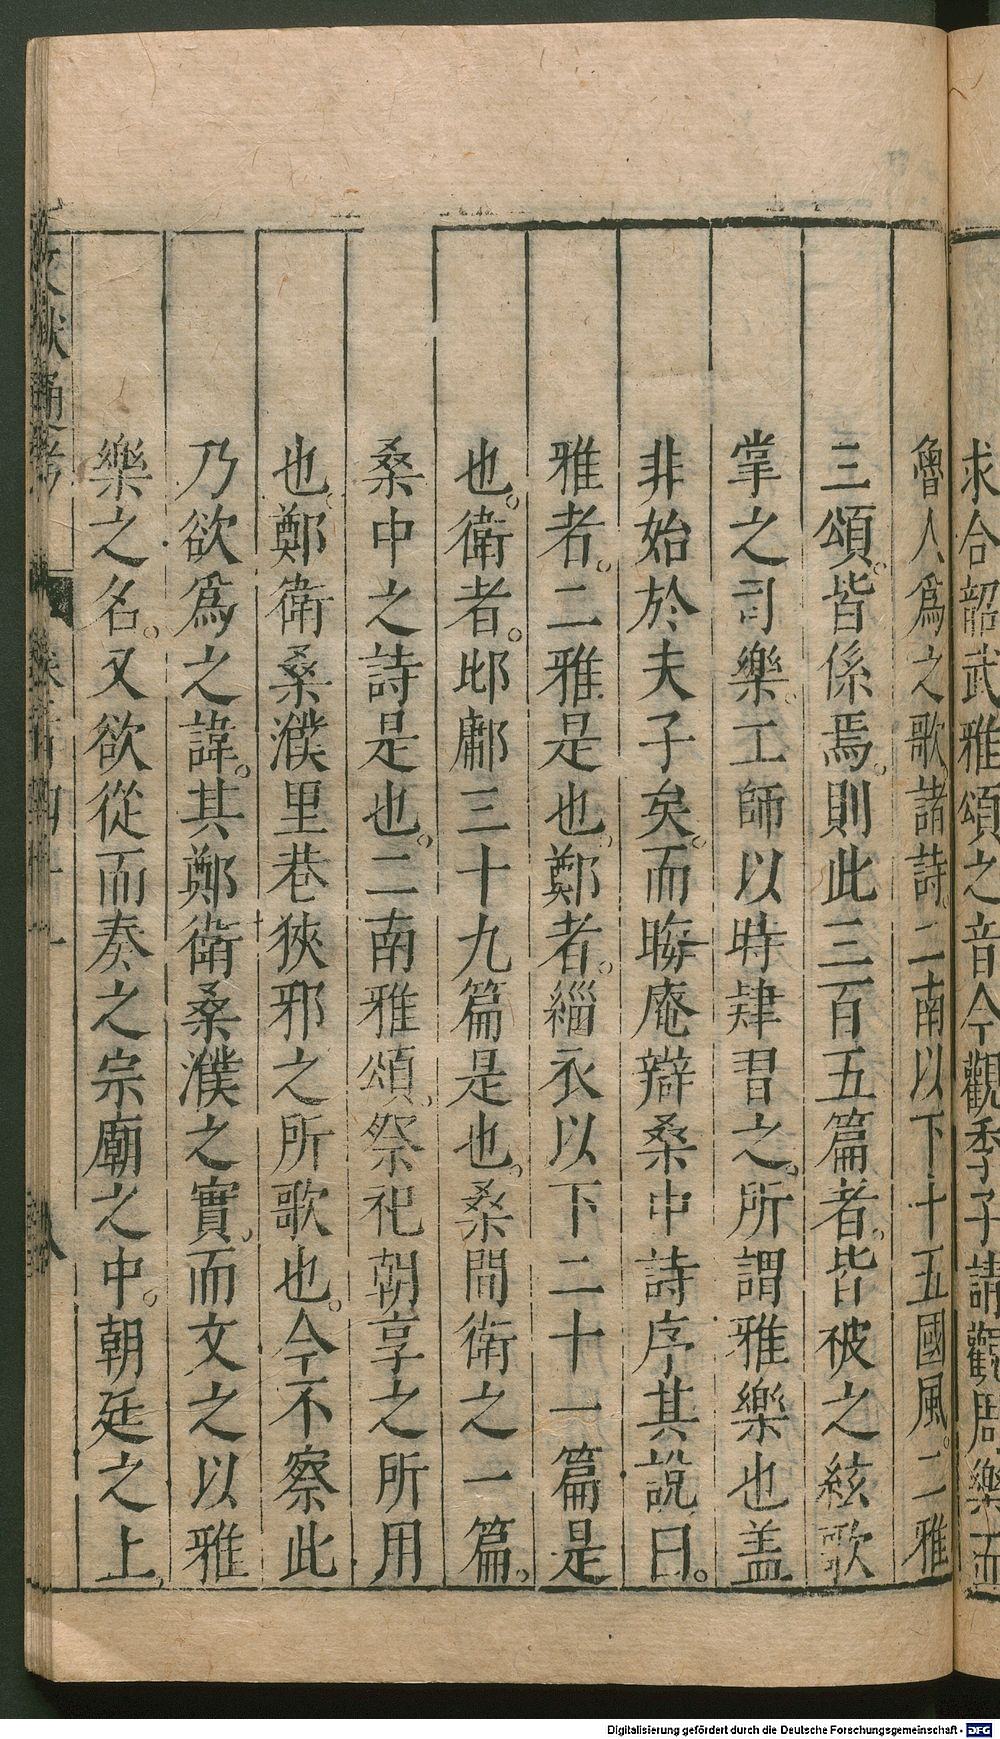 求合韶武雅頌之音今觀季子請觀周樂而
魯人爲之歌諸詩。二南以下十五國風。二雅
三頌。皆係焉。則此三百五篇者。皆被之絃歌
掌之司樂。工師以時肄習之。所謂雅樂也盖
非始於夫子矣。而晦庵辯桑中詩序其說曰。
雅者。二雅是也。鄭者。緇衣以下二十一篇是
也。衛者。邶鄘三十九篇是也。桑間衛之一篇。
桑中之詩是也。二南雅頌。祭祀朝享之所用
也。鄭衛桑濮里巷狹邪之所歌也。今不察此
乃欲爲之諱。其鄭衛桑濮之實。而文之以雅
樂之名。又欲從而奏之宗廟之中。朝廷之上。
文獻通考
八
Digitalisierung gefördert durch die Deutsche Forschungsgemeinschaft - DFG